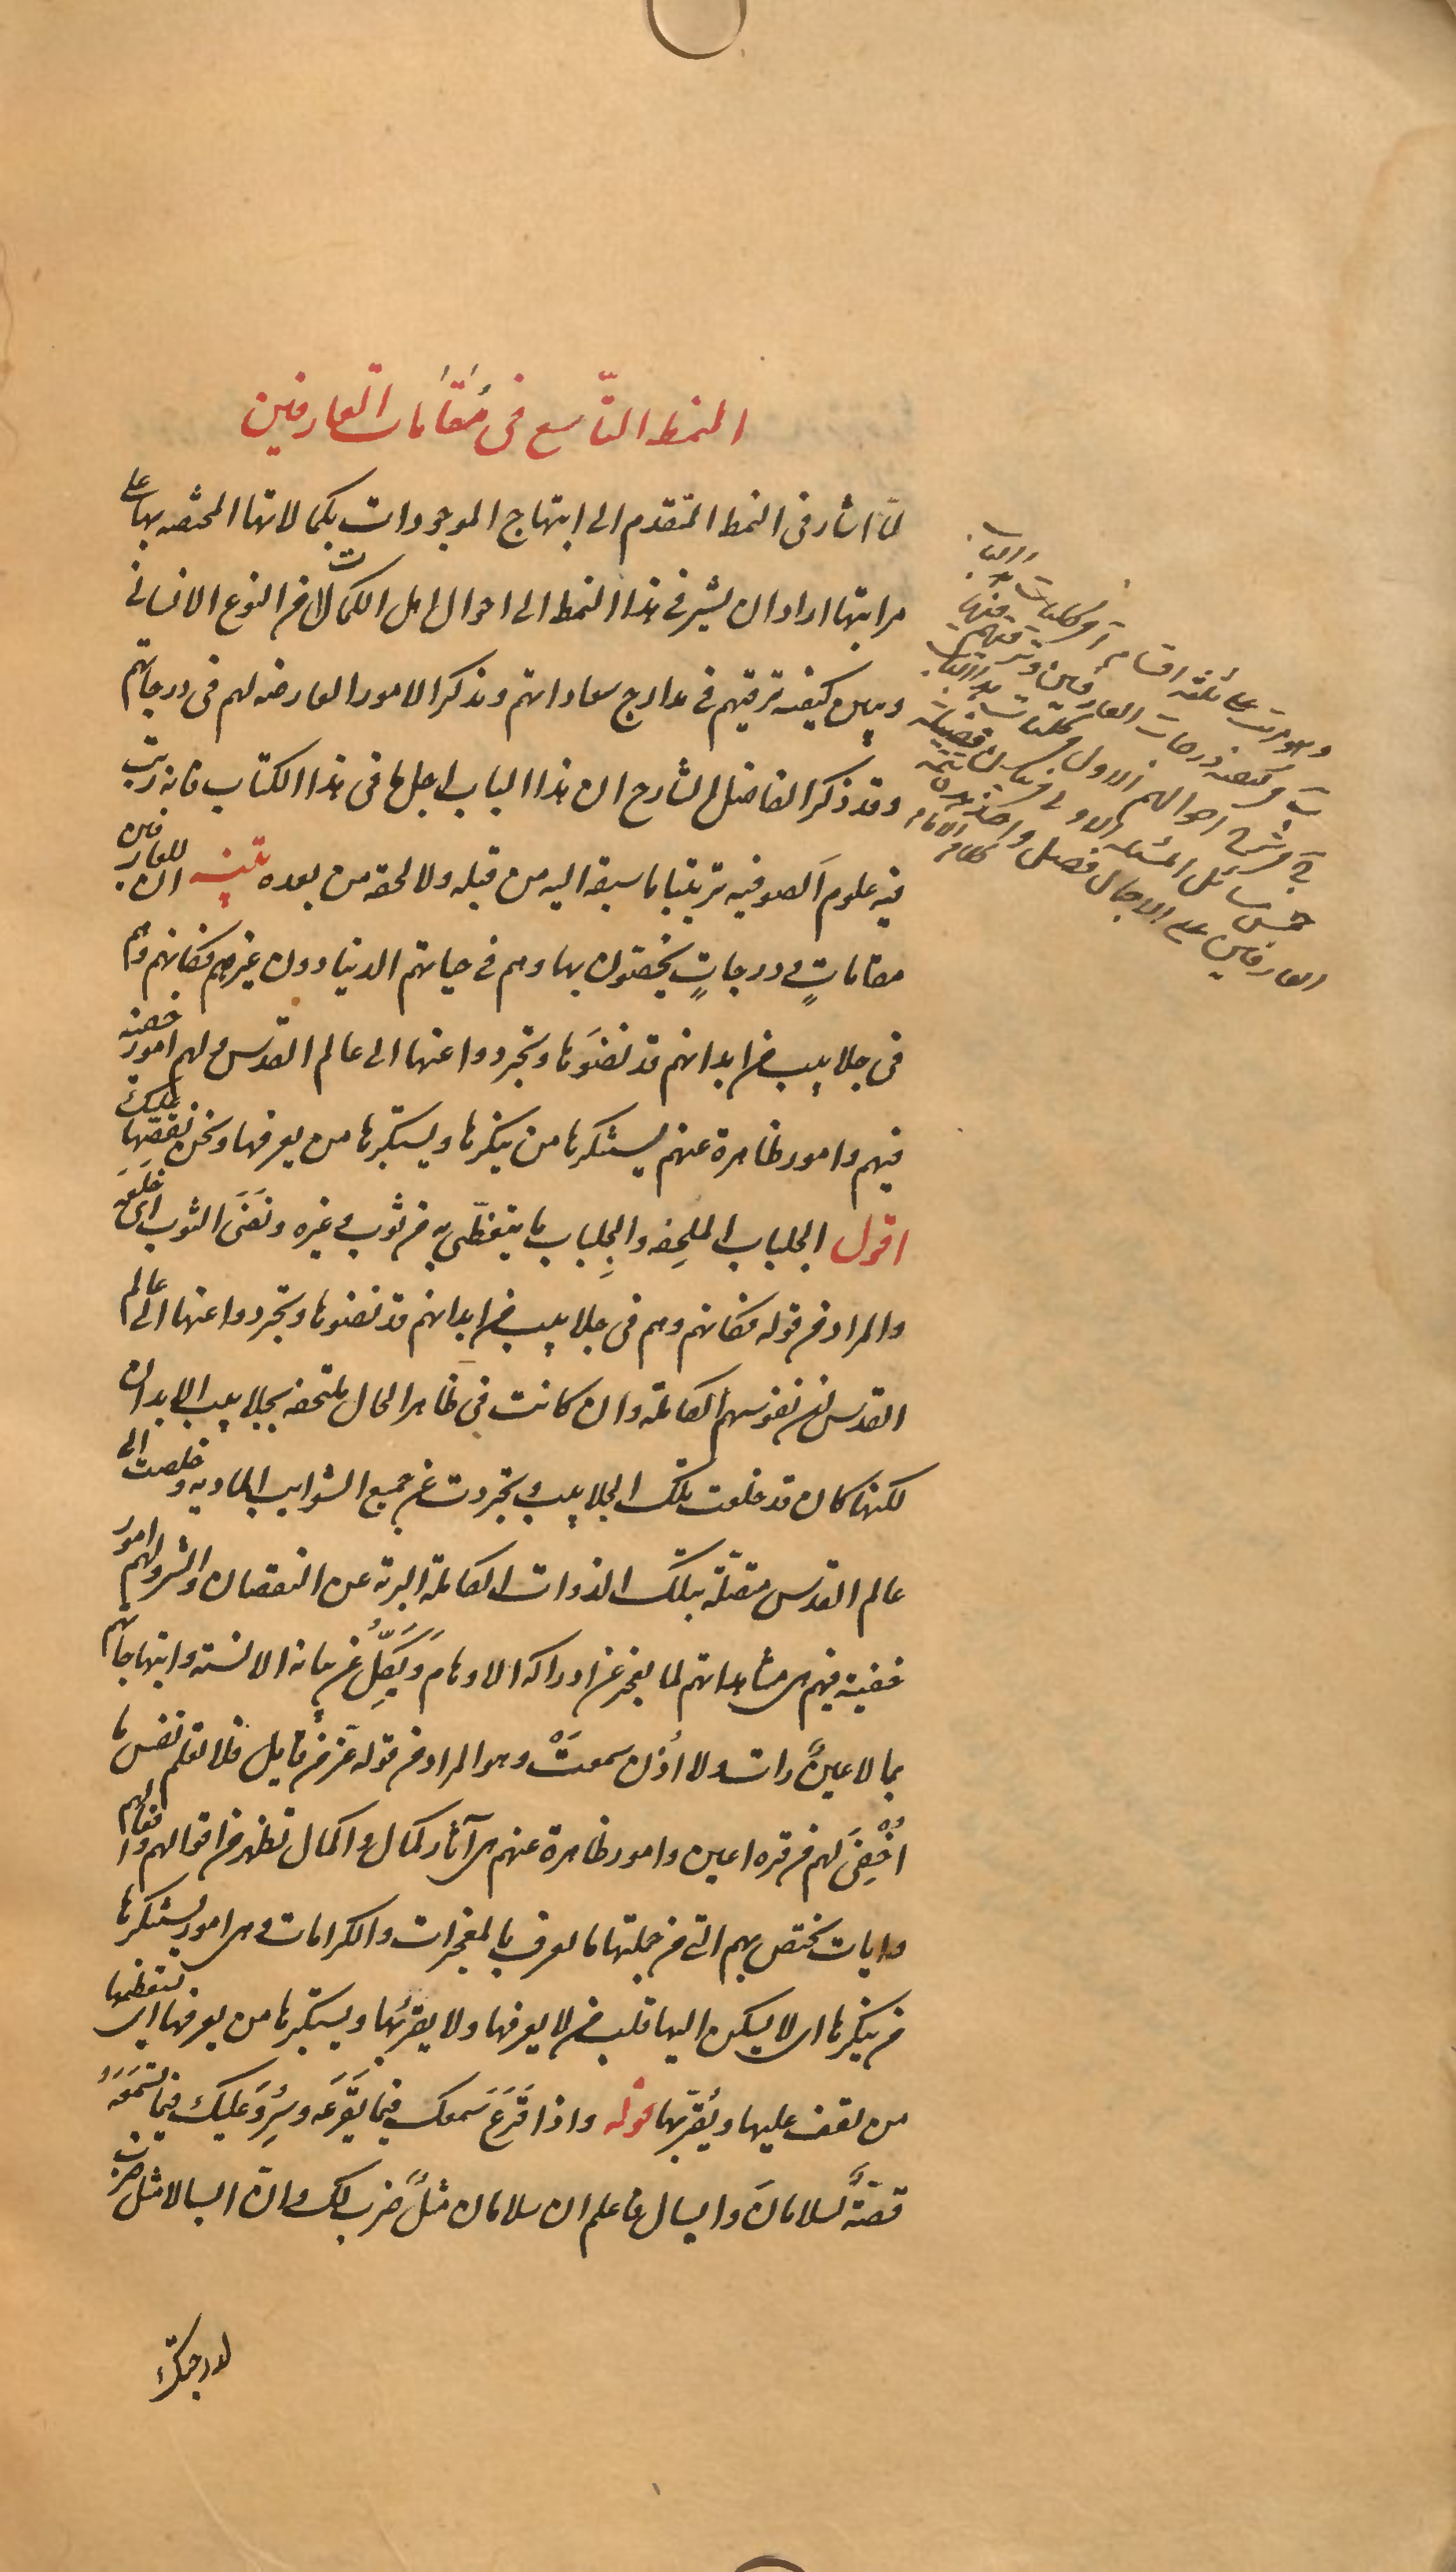 النمط التاسع فى مقامات العارفين
لما اشار فى النمط المتقدم الى ابتهاج الموجودات بكمالاتها المختصه بها على
مراتبها اراد ان يشير فى هذا النمط الى احوال اهل الكمالات من النوع الانسانى
ويبين كيفيه ترقيهم فى مدارج سعاداتهم ويذكر الامور العارضه لهم فى درجاتهم
وقد ذكر الفاضل الشارح ان هذا الباب اجل ما فى هذا الكتاب فانه رتب
فيه علوم الصوفيه ترتيبا ما سبقه اليه من قبله ولا لحقه من بعده تنبيه ان للعارفين
مقاماتٍ ودرجاتٍ يختصون بها وهم فى حياتهم الدنيا دون غيرهم فكانهم وهم
فى جلابيب من ابدانهم قد نضَوها وتجردوا عنها الى عالم القدس ولهم امور خفيه
فيهم وامور ظاهرة عنهم يستنكرها من ينكرها ويستكبرها من يعرفها ونحن نقصّها عليك
اقول الجلباب الملحِفه والجِلباب ما يتغطّى به من ثوب وغيره ونَضَى الثوب اى خَلَعَه
والمراد من قوله فكانهم وهم فى جلابيب من ابدانهم قد نضوها وتجردوا عنها الى عالم
القدس ان نفوسهم الكاملة وان كانت فى ظاهر الحال ملتحفه بجلابيب الابدان
لكنها كان قد خلعت تلك الجلابيب وتجردت عن جميع الشوايب الماديه وخلصت الى
عالم القدس متصلّة بتلك الذوات الكاملة البرية عن النقصان والشر ولهم امور
خفية فيهم هى مشاهداتهم لما يعجز عن ادراكه الاوهام ويَكِلُّ عن بيانه الالسنه وابتهاجاتهم
بما لا عينٌ رات ولا اُذن سمعتْ وهو المراد من قوله عز من قايل فلا تعلم نفس ما
اُخْفِىَ لهم من قره اعين وامور ظاهرة عنهم هى آثار كمال واكمال تظهر من اقوالهم وافعالهم
وايات تختص بهم التى من جملتها ما يعرف بالمعجزات والكرامات وهى امور يستنكرها
من ينكرها اى لا يسكن اليها قلب من لا يعرفها ولا يقرّبها ويستكبرها من يعرفها اى يستعظمها
من يقف عليها ويُقرّبها قوله واذا قَرَعَ سَمعك فيما يَقرَعه وسُرِدَ عليك فيما تسمَعُه
قصّةٌ لسلامانَ وابسال فاعلم ان سلامان مثلٌ ضرب لك وانّ ابسالا مثل ضرب